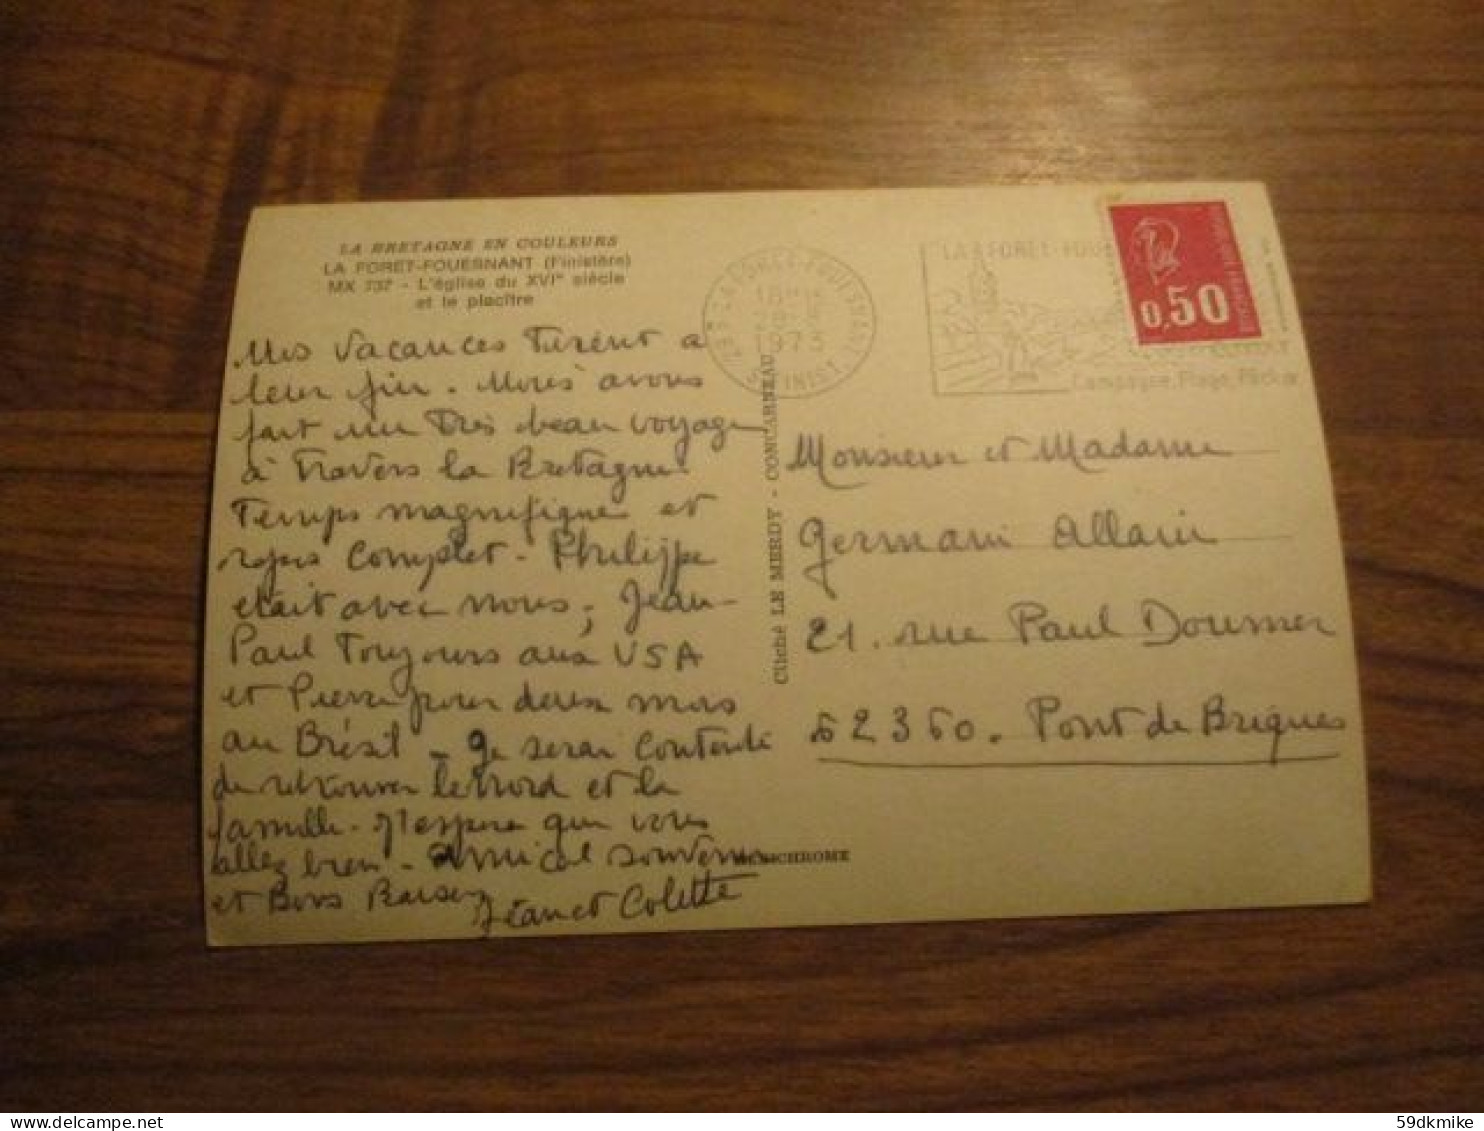 LA BRETAGNE EN COULEURS
LA FORET-FOUESNANT (Finistère)
MX 737 - L'église du XVIe siècle
et le placître
Mes vacances tirent à
leur fin. Nous avons
fait un très beau voyage
à travers la Bretagne
Temps magnifique et
repos complet - Philippe
était avec nous, Jean-
Paul toujours aux USA
et Pierre pour deux mois
au Brésil - Je serai contente
de retrouver le Nord et la
famille - J'espère que vous
allez bien - Amical souvenir
et Bons Baisers
Jean et Colette
Cliché LE MERDY - CONCARNEAU
LA FORET-FOUESNANT
1973
FINIST.
LA FORET-FOUE
Campagne Plage Pêche
0,50
Monsieur et Madame
Germain Allain
21. rue Paul Doumer
62360. Pont de Briques
MEXICHROME
59dkmike